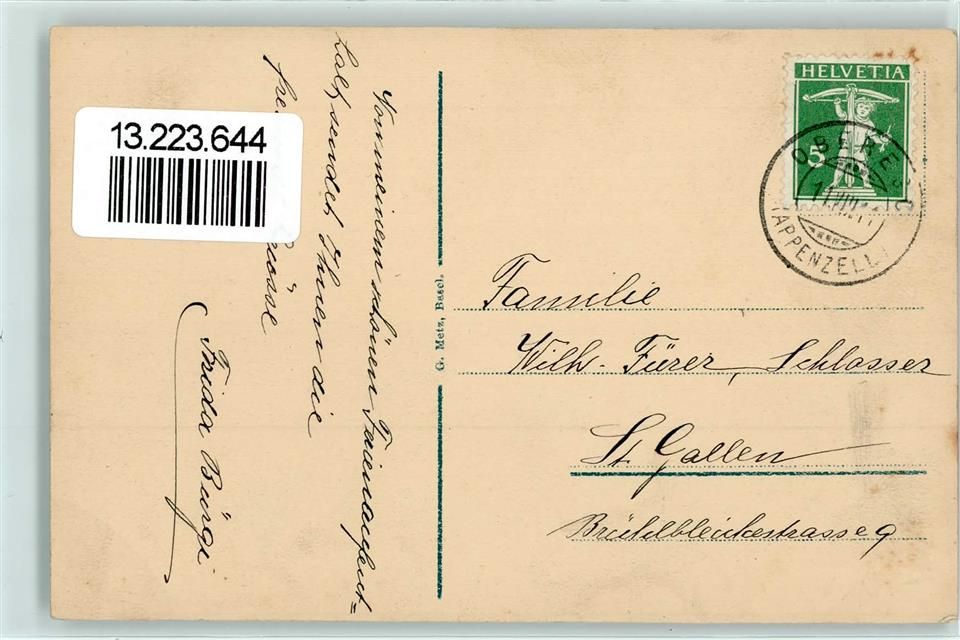 13.223.644
Von meinem schönen Ferienaufent=
halt, sendet Ihnen die
Grüsse
Frida Bürgi
G. Metz, Basel.
HELVETIA
5
APPENZELL
Familie
Wilh. Fürer, Schlosser
St. Gallen
Brühlbleichestrasse 9